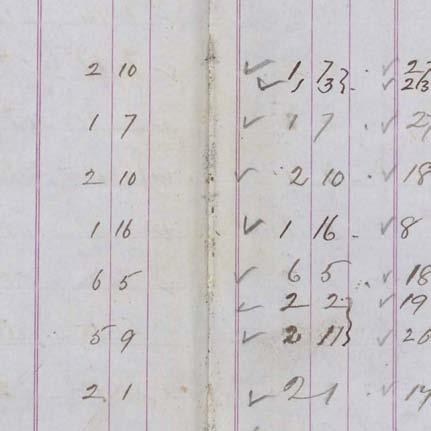 2 10 ✓ 1 7 } ✓ 27
✓ 1 3 } ✓ 23
1 7 ✓ 1 7 ✓ 2
2 10 ✓ 2 10 ✓ 18
1 16 ✓ 1 16 ✓ 8
6 5 ✓ 6 5 ✓ 18
✓ 2 2 } ✓ 19
5 9 ✓ 2 11 } ✓ 26
2 1 ✓ 2 1 ✓ 17